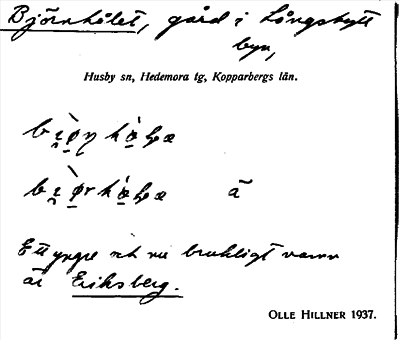 Björnhålet, gård i Långshytt
byn,
Husby sn, Hedemora tg, Kopparbergs län.
å
Ett yngre nu brukligt namn
är Eriksberg.
OLLE HILLNER 1937.